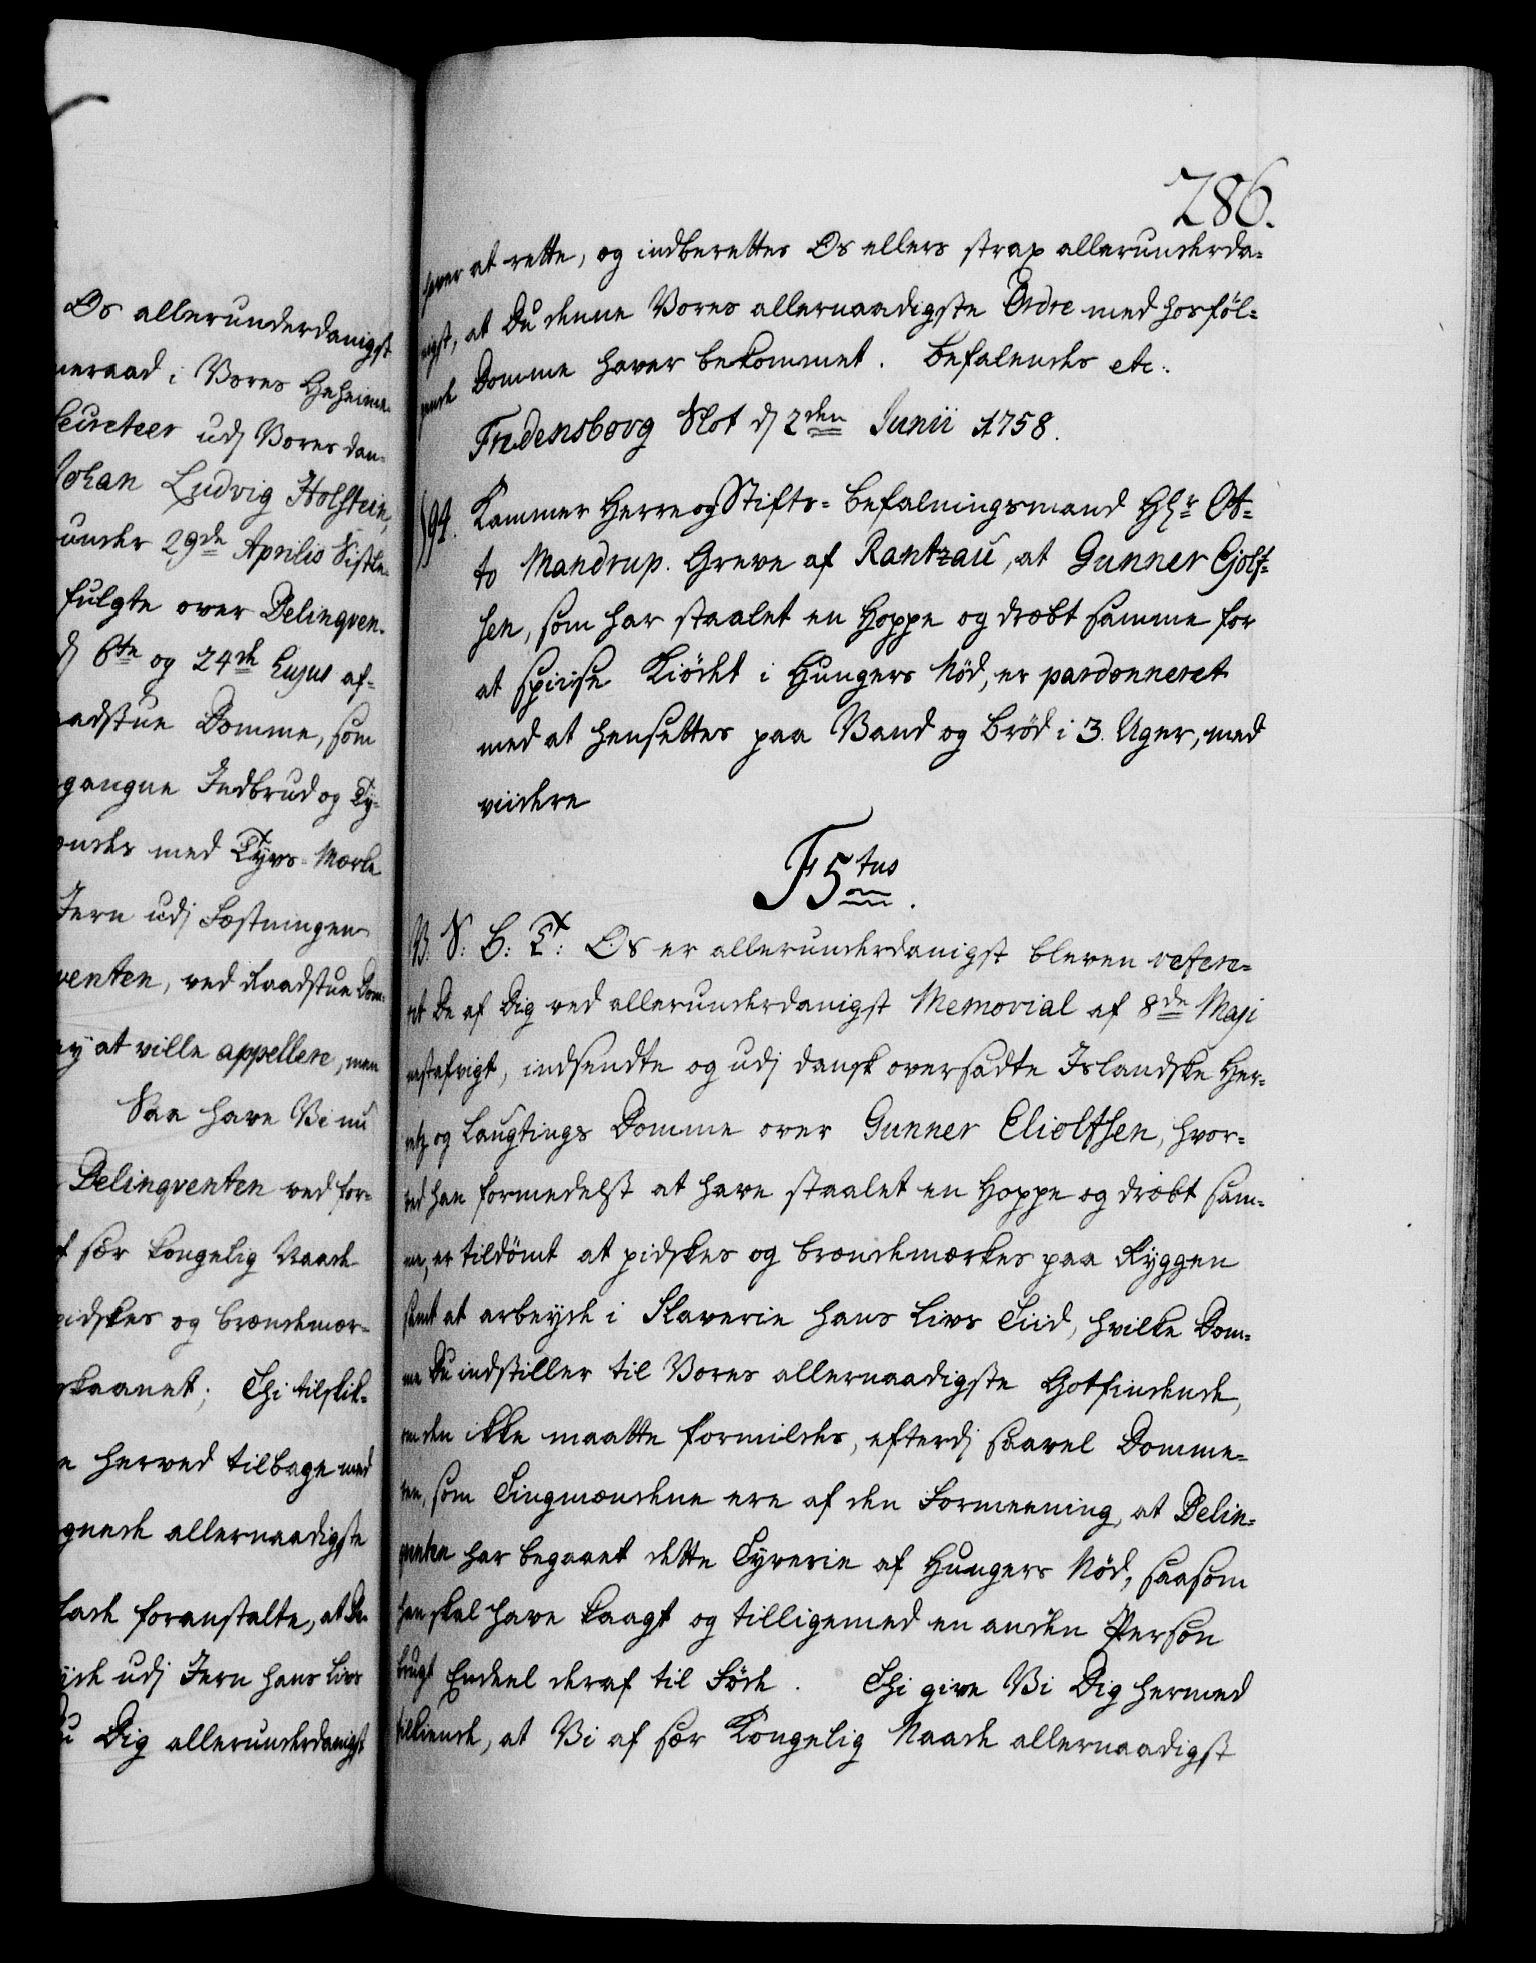 Os allerunderdanigst
meraad i Vores Geheime-
secreteer udj Vores dan-
Johan Ludvig Holstein,
under 29de Aprilis Sistle-
fulgte over Delinqven-
dj 6te og 24de hujus af-
aadstue Domme, som
gangne Indbrud og Ty-
endes med Tyvs-Mærke
Jern udj Fæstningen
venten, ved Raadstue Dom-
ey at ville appellere, men
Saa have Vi nu
Delinqventen ved for-
af sær Kongelig Naade
pidskes og brændemær-
skaanet; Thi tilskik-
e herved tilbage med
gnede allernaadigste
lade foranstalte, at De-
yde udj Jern hans Livs
Du Dig allerunderdanigst
286.
haver at rette, og indberettes Os ellers strax allerunderda-
nigst, at Du denne Vores allernaadigste Ordre med hosføl-
gende Domme haver bekommet. Befalendes etc:
Fredensborg Slot dj 2den Junii 1758.
194. Kammer Herre og Stifts-Befalningsmand Hr. Ot-
to Mandrup. Greve af Rantzau, at Gunner Ejolf-
sen, som har staalet en Hoppe og dræbt samme for
at spiise Kiødet i Hungers Nød, er pardonneret
med at hensettes paa Vand og Brød i 3. Uger, med
viidere
F5tus.
V. S: G: T: Os er allerunderdanigst bleven refere-
ret De af Dig ved allerunderdanigst Memorial af 8de Maji
nestafvigt, indsendte og udj dansk oversadte Islandske Her-
retz og Laugtings Domme over Gunner Eliolfsen, hvor-
ved han formedelst at have staalet en Hoppe og dræbt sam-
me, er tildømt at pidskes og brændemærkes paa Ryggen
samt at arbeyde i Slaverie hans Livs Tiid, hvilke Dom-
me Du indstiller til Vores allernaadigste Gotfindende,
om den ikke maatte formildes, efterdj saavel Domme-
ren, som Tingmændene ere af den Formeening, at Delin-
qventen har begaaet dette Tyverie af Hungers Nød, saasom
han skal have kaagt og tilligemed en anden Person
brugt Endeel deraf til Føde. Thi give Vi Dig hermed
tilkiende, at Vi af sær Kongelig Naade allernaadigst